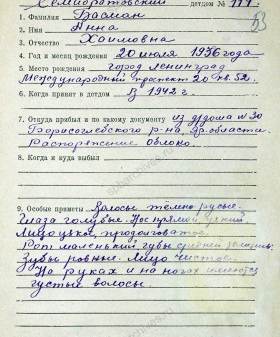 Семибратовский детдом № 117.
53
1. Фамилия Басман
2. Имя Анна
3. Отчество Хаимовна
4. Год и месяц рождения 20 июля 1936 года
5. Место рождения город Ленинград
Международный проспект 20 кв. 52.
6. Когда принят в детдом В 1942 г.
7. Откуда прибыл и по какому документу из д/дома № 30
Борисоглебского р-на, Яр. области
Распоряжение облоно.
8. Когда и куда выбыл
9. Особые приметы Волосы тёмно русые.
Глаза голубые. Нос прямой, узкий
Лицо узкое, продолговатое.
Рот маленький, губы средней
Зубы ровные. Лицо чистое.
На руках и на ногах имеются
густые волосы.